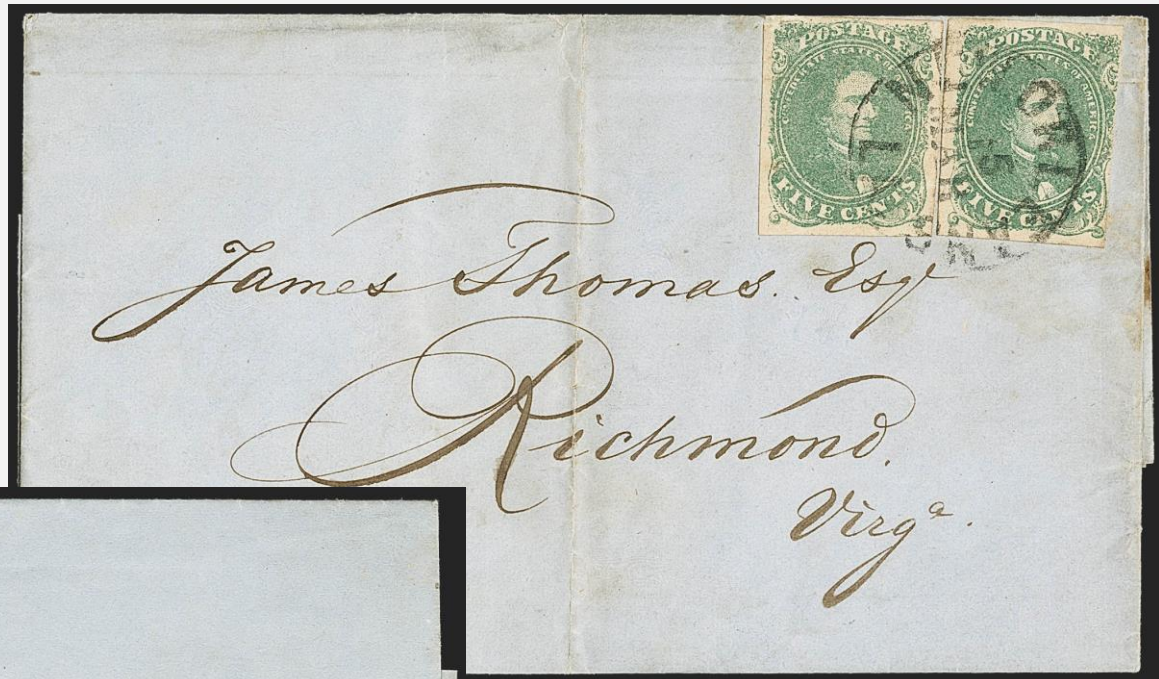 POSTAGE
CONFEDERATE STATES OF AMERICA
FIVE CENTS
POSTAGE
CONFEDERATE STATES OF AMERICA
FIVE CENTS
James Thomas. Esqr
Richmond.
Virga.